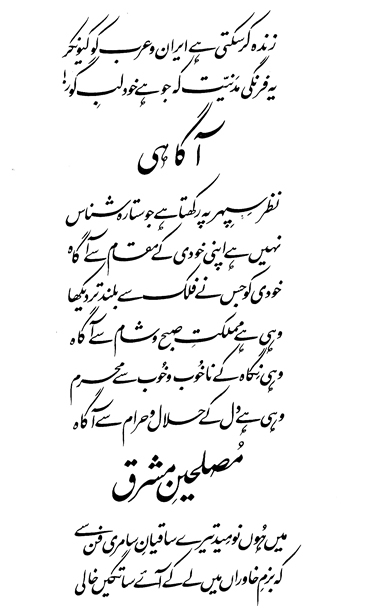 زندہ کر سکتی ہے ایران و عرب کو کیونکر
یہ فرنگی مدنیّت کہ جو ہے خود لبِ گور!
آگاہی
نظر سپہر پہ رکھتا ہے جو ستارہ شناس
نہیں ہے اپنی خودی کے مقام سے آگاہ
خودی کو جس نے فلک سے بلند تر دیکھا
وہی ہے مملکتِ صبح و شام سے آگاہ
وہی نگاہ کے ناخُوب و خُوب سے محرم
وہی ہے دل کے حلال و حرام سے آگاہ
مُصلحینِ مشرق
میں ہُوں نومید تیرے ساقیانِ سامری فن سے
کہ بزمِ خاوراں میں لے کے آئے ساتگیں خالی